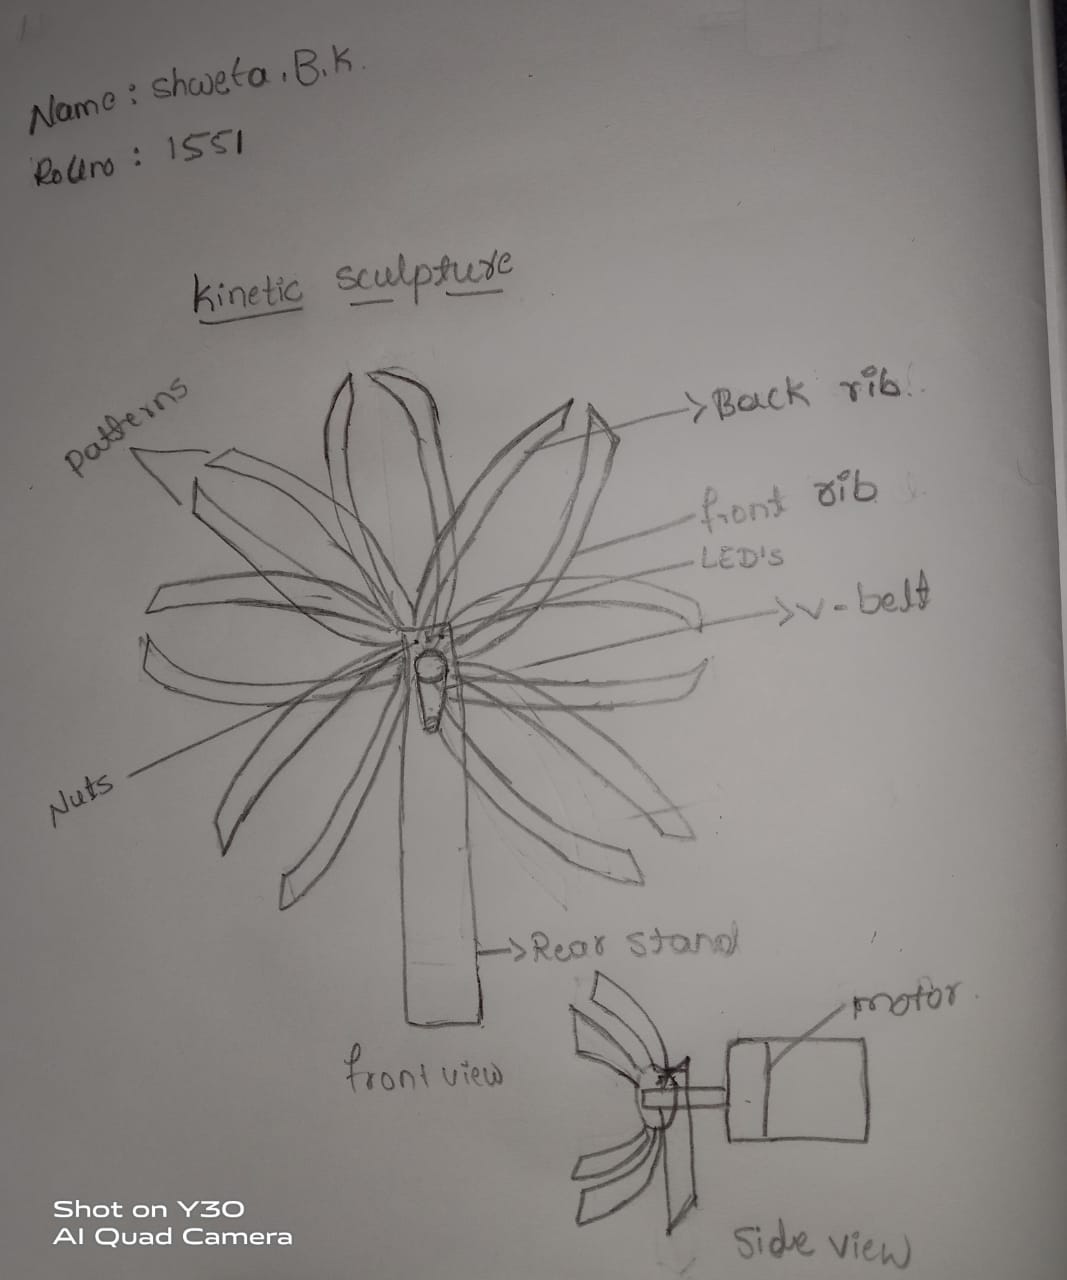 Name : Shweta . B.K.
Rollno : 1551
Kinetic sculpture
Patterns
Back rib
front rib
LED'S
v-belt
Nuts
Rear stand
motor
front view
Side view
Shot on Y30
AI Quad Camera